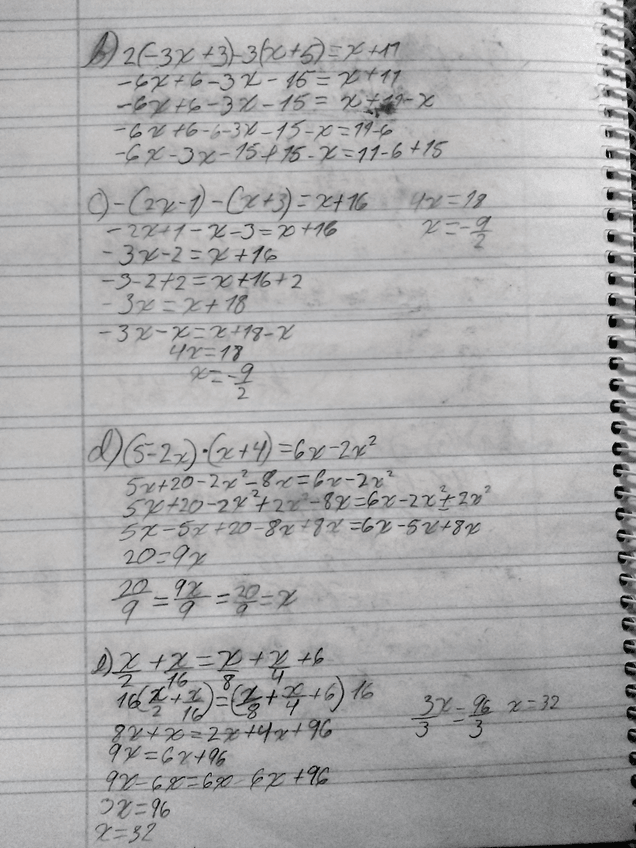 b) 2(-3x+3)-3(x+5)=x+11
-6x+6-3x-15=x+11
-6x+6-3x-15=x+11-x
-6x+6-6-3x-15-x=11-6
-6x-3x-15+15-x=11-6+15
c) -(2x-1)-(x+3)=x+16
-2x+1-x-3=x+16
-3x-2=x+16
-3-2+2=x+16+2
-3x=x+18
-3x-x=x+18-x
4x=18
x=-9/2
4x=18
x=-9/2
d) (5-2x)·(x+4)=6x-2x²
5x+20-2x²-8x=6x-2x²
5x+20-2x²+2x²-8x=6x-2x²+2x²
5x-5x+20-8x+8x=6x-5x+8x
20=9x
20/9=9x/9=20/9=x
e) x/2+x/16=x/8+x/4+6
16(x/2+x/16)=(x/8+x/4+6)16
8x+x=2x+4x+96
9x=6x+96
9x-6x=6x-6x+96
3x=96
x=32
3x/3=96/3 x=32